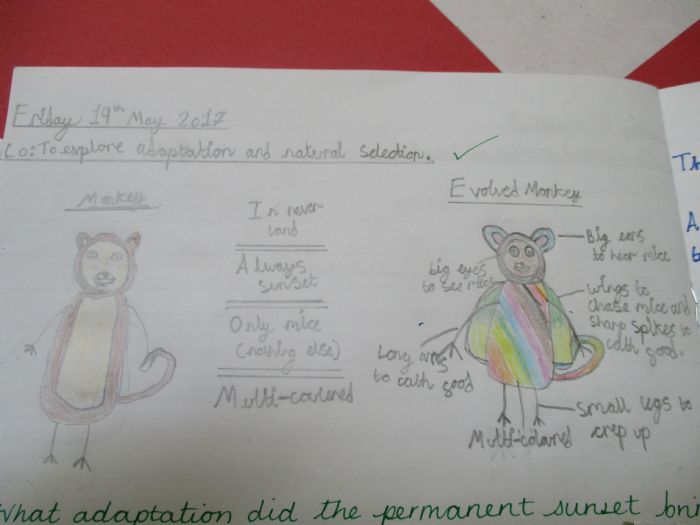 Friday 19th May 2017
Lo: To explore adaptation and natural selection.
Monkey
In never
land
Always
sunset
Only mice
(nothing else)
Multi-coulered
Evolved Monkey
Big ears
to hear mice
big eyes
to see mice
wings to
chase mice and
sharp spikes to
cath good.
Long arms
to cath good
Small legs to
crep up
Multi-coloured
What adaptation did the permanent sunset bri